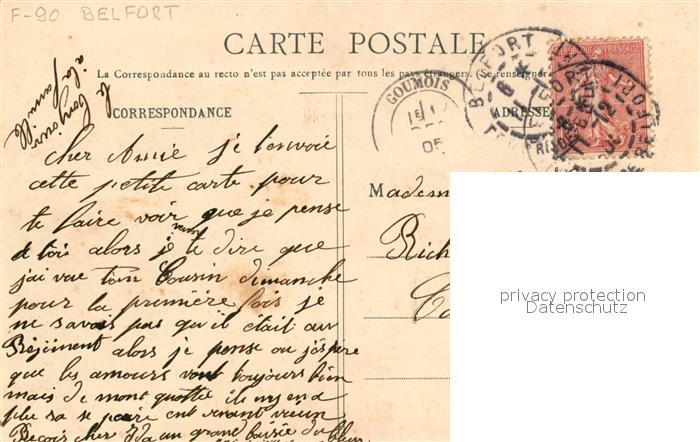 F-90 BELFORT
CARTE POSTALE
La Correspondance au recto n'est pas acceptée par tous les pays étrangers. (Se renseigner
CORRESPONDANCE
ADRESSE
le bonjour
à la famille
GOUMOIS
05
BELFORT
BELFORT
RÉPUBLIQUE FRANÇAISE
cher Amie je t'envoie
cette petite carte pour
te faire voir que je pense
à toi alors je veux te dire que
j'ai vue ton Cousin dimanche
pour la première fois je
ne savais pas qu'il était au
Régiment alors je pense ou j'espere
que les amours vont toujours bien
mais de mont quottée il
plu sa se
Reçois cher Ida un grand
Madem
Rich
privacy protection
Datenschutz